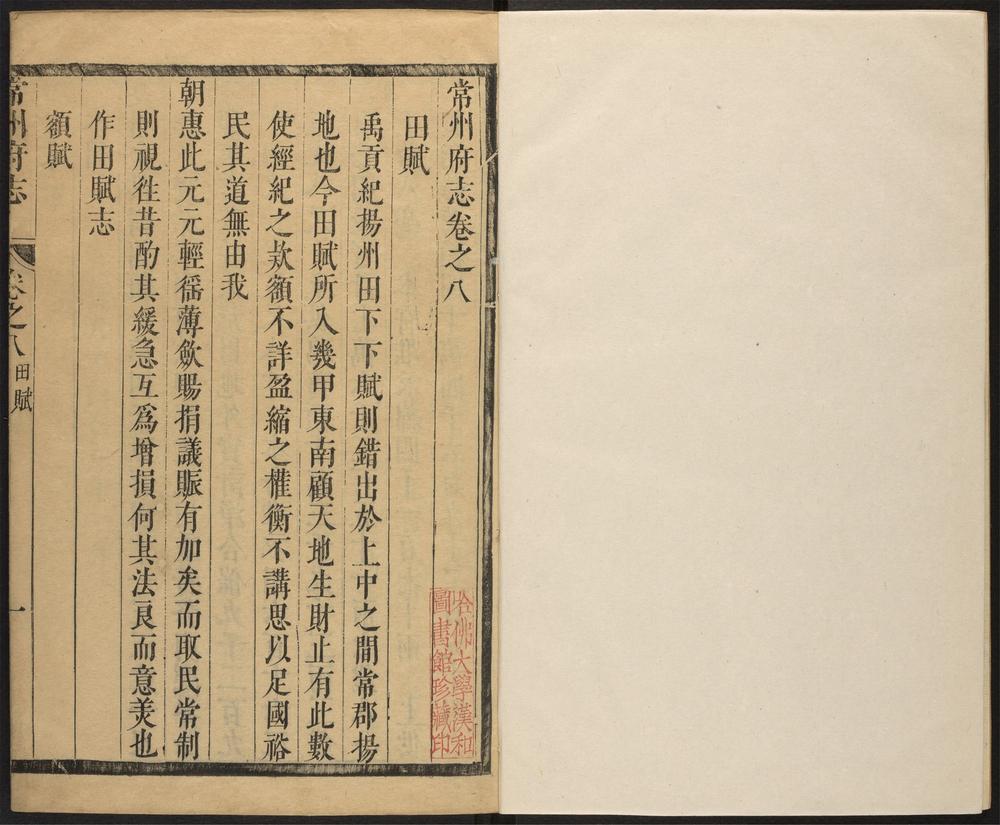 常州府志卷之八
田賦
禹貢紀揚州田下下賦則錯出於上中之間常郡揚
地也今田賦所入幾甲東南顧天地生財止有此數
使經紀之欵額不詳盈縮之權衡不講思以足國裕
民其道無由我
朝惠此元元輕徭薄歛賜捐議賑有加矣而取民常制
則視徃昔酌其緩急互爲增損何其法良而意美也
作田賦志
額賦
常州府志 卷之八 田賦 一
哈佛大學漢和
圖書館珍藏印